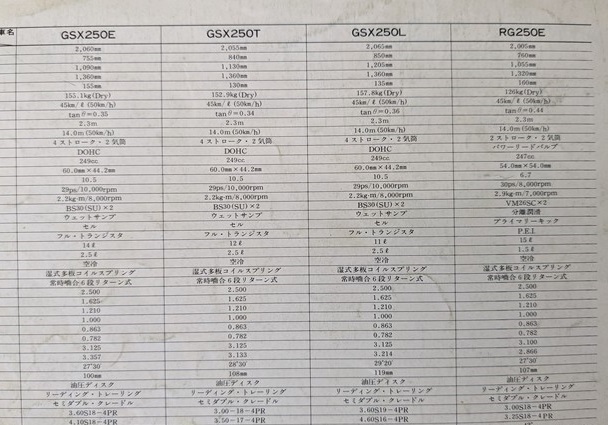 車名 GSX250E GSX250T GSX250L RG250E
2,060mm 2,055mm 2,065mm 2,005mm
755mm 840mm 850mm 760mm
1,090mm 1,130mm 1,205mm 1,055mm
1,360mm 1,360mm 1,360mm 1,320mm
155mm 130mm 135mm 160mm
155.1kg(Dry) 152.9kg(Dry) 157.8kg(Dry) 126kg(Dry)
45km/ℓ(50km/h) 45km/ℓ(50km/h) 45km/ℓ(50km/h) 45km/ℓ(50km/h)
tanθ=0.35 tanθ=0.34 tanθ=0.36 tanθ=0.44
2.3m 2.3m 2.3m 2.3m
14.0m(50km/h) 14.0m(50km/h) 14.0m(50km/h) 14.0m(50km/h)
4ストローク・2気筒 4ストローク・2気筒 4ストローク・2気筒 2ストローク・2気筒
DOHC DOHC DOHC パワーリードバルブ
249cc 249cc 249cc 247cc
60.0mm×44.2mm 60.0mm×44.2mm 60.0mm×44.2mm 54.0mm×54.0mm
10.5 10.5 10.5 6.7
29ps/10,000rpm 29ps/10,000rpm 29ps/10,000rpm 30ps/8,000rpm
2.2kg-m/8,000rpm 2.2kg-m/8,000rpm 2.2kg-m/8,000rpm 2.9kg-m/7,000rpm
BS30(SU)×2 BS30(SU)×2 BS30(SU)×2 VM26SC×2
ウェットサンプ ウェットサンプ ウェットサンプ 分離潤滑
セル セル セル プライマリーキック
フル・トランジスタ フル・トランジスタ フル・トランジスタ P.E.I.
14ℓ 12ℓ 11ℓ 15ℓ
2.5ℓ 2.5ℓ 2.5ℓ 1.5ℓ
空冷 空冷 空冷 空冷
湿式多板コイルスプリング 湿式多板コイルスプリング 湿式多板コイルスプリング 湿式多板コイルスプリング
常時噛合6段リターン式 常時噛合6段リターン式 常時噛合6段リターン式 常時噛合6段リターン式
2.500 2.500 2.500 2.500
1.625 1.625 1.625 1.625
1.210 1.210 1.210 1.210
1.000 1.000 1.000 1.000
0.863 0.863 0.863 0.863
0.782 0.782 0.782 0.782
3.125 3.125 3.125 3.100
3.357 3.133 3.214 2.866
27°30′ 28°30′ 29°20′ 27°30′
100mm 108mm 119mm 107mm
油圧ディスク 油圧ディスク 油圧ディスク 油圧ディスク
リーディング・トレーリング リーディング・トレーリング リーディング・トレーリング リーディング・トレーリング
セミダブル・クレードル セミダブル・クレードル セミダブル・クレードル セミダブル・クレードル
3.60S18-4PR 3.00-18-4PR 3.60S19-4PR 3.00S18-4PR
4.10S18-4PR 3.50-17-4PR 4.60S16-4PR 3.25S18-4PR